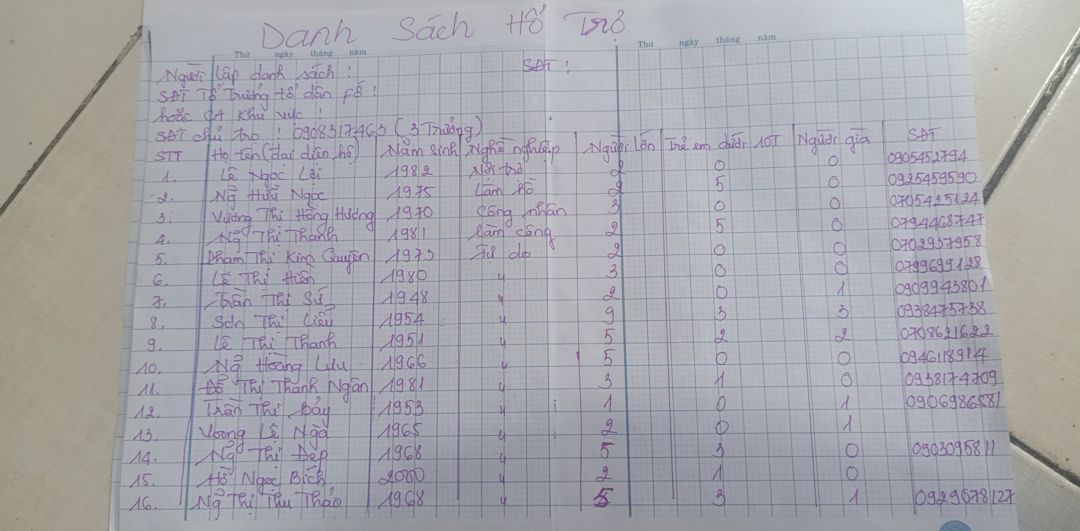 Danh Sách Hổ Trợ
Thứ ngày tháng năm Thứ ngày tháng năm
Người lập danh sách : SĐT :
SĐT Tổ Trưởng tổ dân fố :
hoặc CA Khu vực :
SĐT chủ trọ : 0908317463 (3 Trưởng)
STT Họ tên (đại diện hộ) Năm sinh Nghề nghiệp Người lớn Trẻ em dưới 10T Người già SĐT
1. Lê Ngọc Lợi 1982 Nội trợ 2 0 0 0905452794
2. Ng̃ Hữu Ngọc 1975 Làm hồ 2 5 0 0925459590
3. Vương Thị Hồng Hương 1970 Công nhân 3 0 0 0705425124
4. Ng̃ Thị Thanh 1981 làm công 2 5 0 0794468747
5. Phạm Thị Kim Quyên 1973 Tự do 2 0 0 0702937958
6. Lê Thị Hiền 1980 " 3 0 0 0799699128
7. Trần Thị Sứ 1948 " 2 0 1 0909943801
8. Sơn Thị Liễu 1954 " 9 3 3 0938475738
9. Lê Thị Thanh 1951 " 5 2 2 0708621622
10. Ng̃ Hoàng Lưu 1966 " 5 0 0 0946118914
11. Đỗ Thị Thanh Ngân 1981 " 3 1 0 0938174709
12. Trần Thị Bảy 1953 " 1 0 1 0906986581
13. Voong Lê Ngà 1965 " 2 0 1
14. Ng̃ Thị Đẹp 1968 " 5 3 0 0903095811
15. Hồ Ngọc Bích 2000 " 2 1 0
16. Ng̃ Thị Thu Thảo 1968 " 5 3 1 0929678127